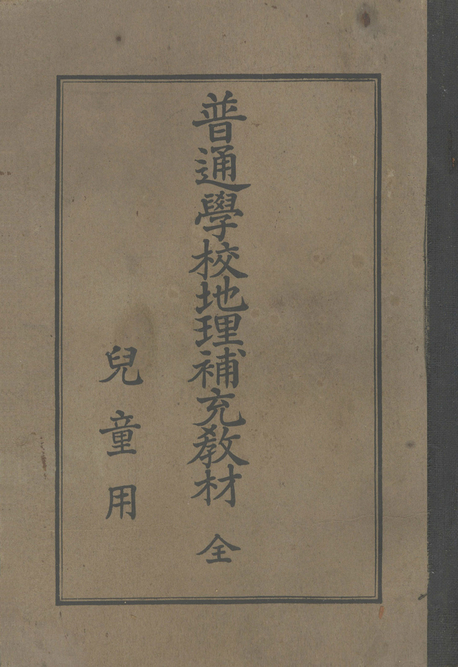 普通學校地理補充教材 全
兒童用